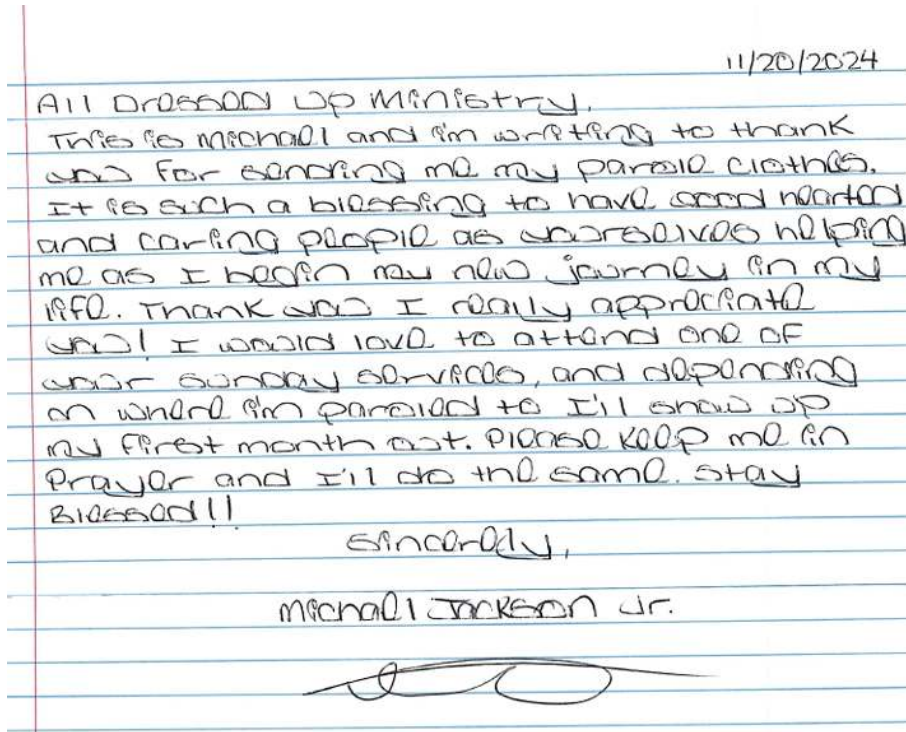 11/20/2024
All Dressed Up Ministry,
This is Michael and i'm writing to thank
you for sending me my parole clothes.
It is such a blessing to have good hearted
and caring people as yourselves helping
me as I begin my new journey in my
life. Thank you I really appreciate
you! I would love to attend one of
your sunday services, and depending
on where i'm paroled to I'll show up
my first month out. Please keep me in
Prayer and I'll do the same. Stay
Blessed!!
Sincerely,
Michael Jackson Jr.